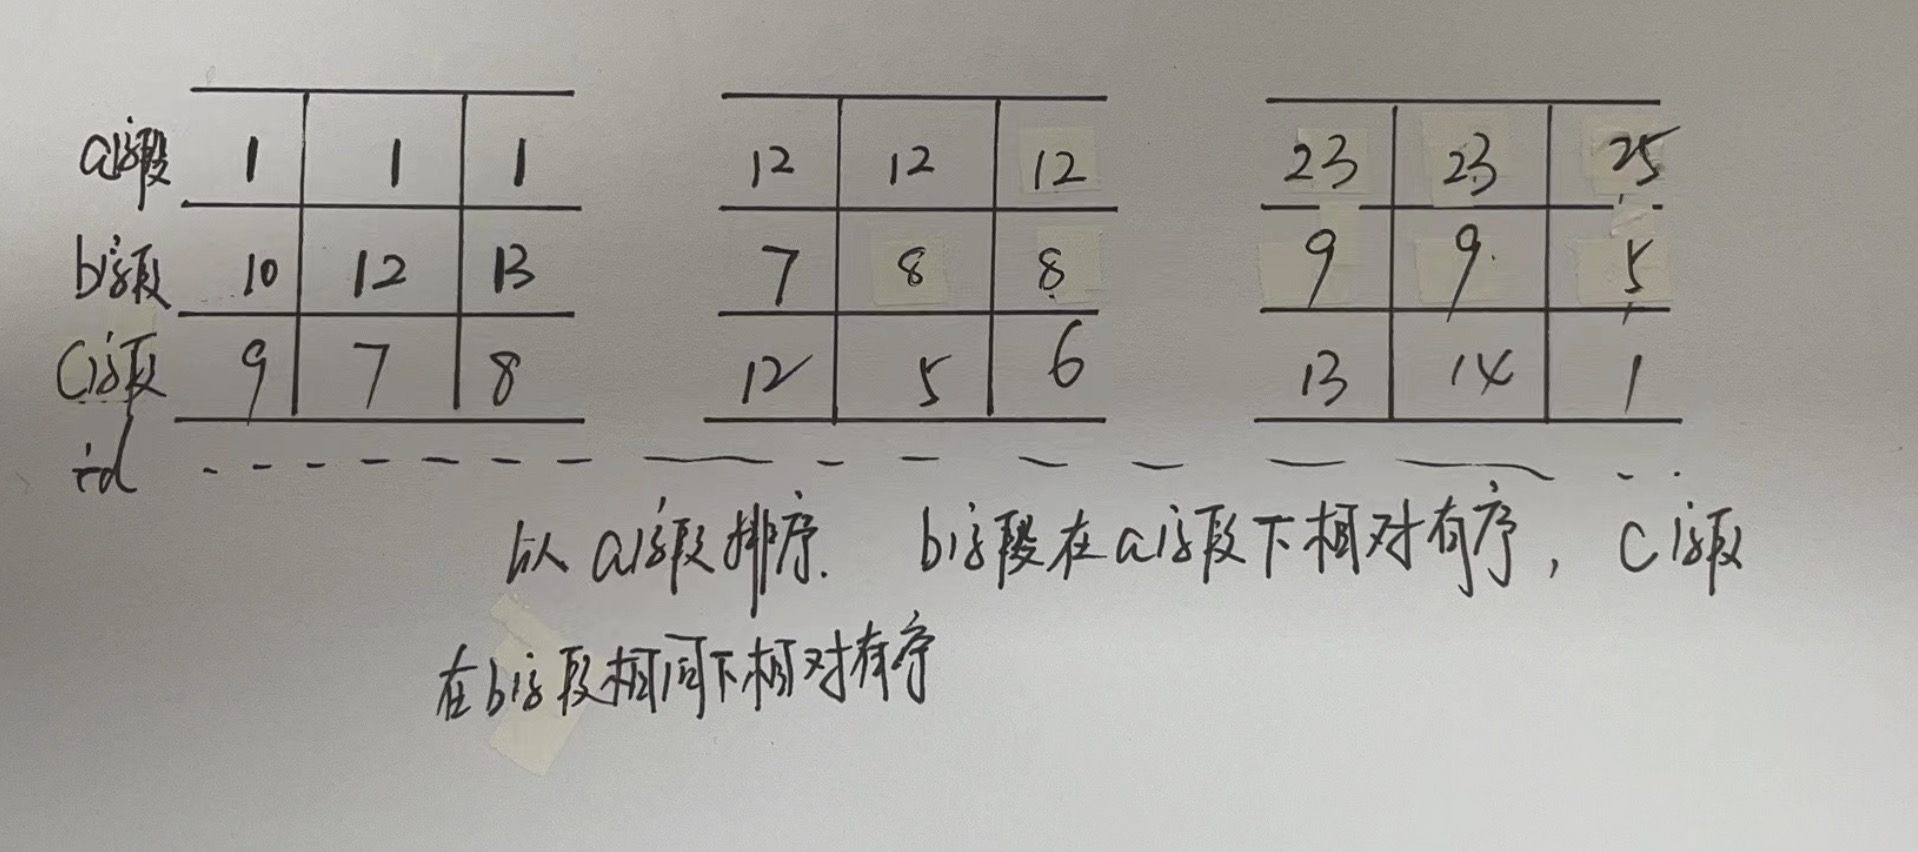 a字段 1 1 1 12 12 12 23 23 25
b字段 10 12 13 7 8 8 9 9 5
C字段 9 7 8 12 5 6 13 14 1
id
以a字段排序. b字段在a字段下相对有序, C字段
在b字段相同下相对有序